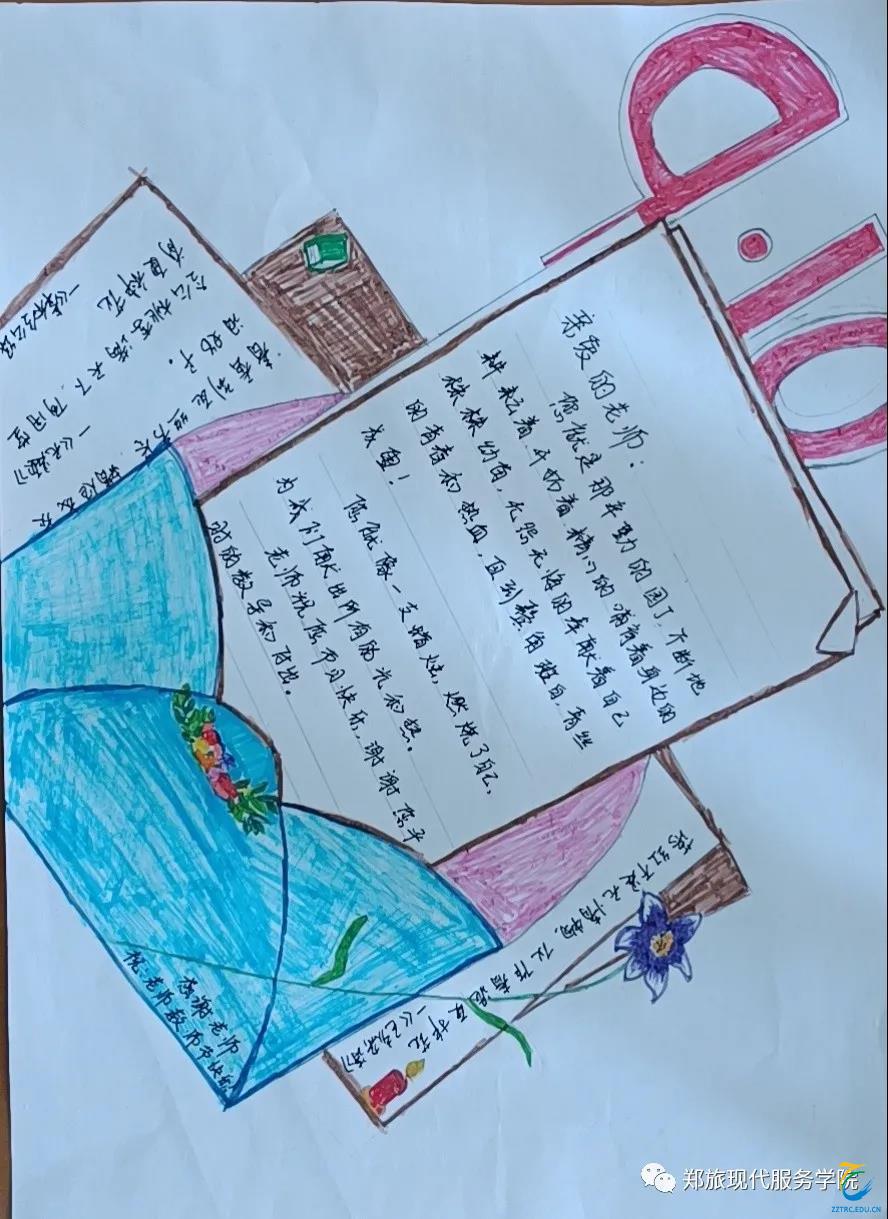 亲爱的老师：
您就是那辛勤的园丁，不断地
耕耘着，平畅着，精心的哺育着身边的
株株幼苗，无怨无悔的奉献着自己
的青春和热血，直到鬓角斑白，青丝
成雪！
您就像一支蜡烛，燃烧了自己，
为我们献出所有的光和热。
老师祝您节日快乐，谢谢您平
时的教导和付出。
令公桃李满天下，何用堂
前更种花
春蚕到死丝方尽
一《无题》
落红不是无情物，化作春泥更护花
一《己亥杂诗》
感谢老师
祝：老师教师节快乐
郑旅现代服务学院
ZZTRC.EDU.CN